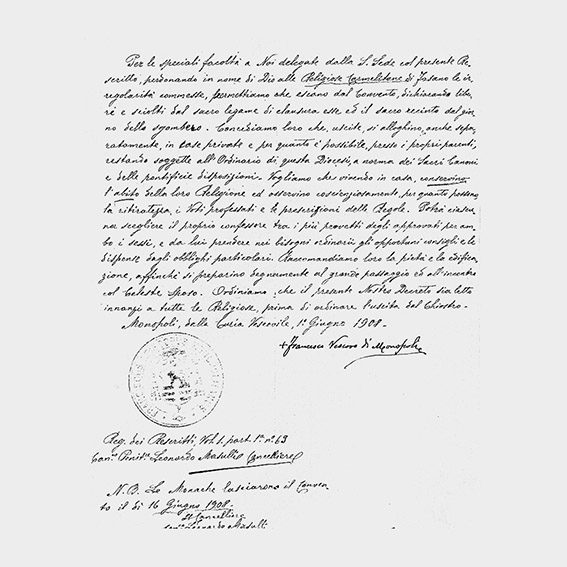 Per le speciali facoltà a Noi delegate dalla S. Sede col presente Re-
scritto, perdonando in nome di Dio alle Religiose Carmelitane di Fasano le ir-
regolarità commesse, permettiamo che escano dal Convento, dichiarando libe-
re e sciolti dal sacro legame di clausura esse ed il sacro recinto dal gior-
no dello sgombero. Concediamo loro che, uscite, si alloghino, anche sepa-
ratamente, in case private e per quanto è possibile, presso i propri parenti,
restando soggette all'Ordinario di questa Diocesi, a norma dei Sacri Canoni
e delle pontificie disposizioni. Vogliamo che vivendo in casa, conservino
l'abito della loro Religione ed osservino coscienziosamente, per quanto possono
la ritiratezza, i Voti professati e le prescrizioni delle Regole. Potrà ciascu-
na scegliere il proprio confessore tra i più provetti degli approvati per am-
bo i sessi, e da lui prendere nei bisogni ordinarii gli opportuni consigli e le
dispense dagli obblighi particolari. Raccomandiamo loro la pietà e la edifica-
zione, affinchè si preparino degnamente al grande passaggio ed all'incontro
col Celeste Sposo. Ordiniamo, che il presente Nostro Decreto sia letto
innanzi a tutte le Religiose, prima di ordinare l'uscita dal Chiostro-
Monopoli, dalla Curia Vescovile, 1º Giugno 1908-
+ Francesco Vescovo di Monopoli
Reg. dei Rescritti Vol. 1. part. 1ª nº 63
Can.co Penit. Leonardo Cancelliere
N.B. Le Monache lasciarono il Conven-
to il dì 16 Giugno 1908-
Il Cancelliere
Leonardo